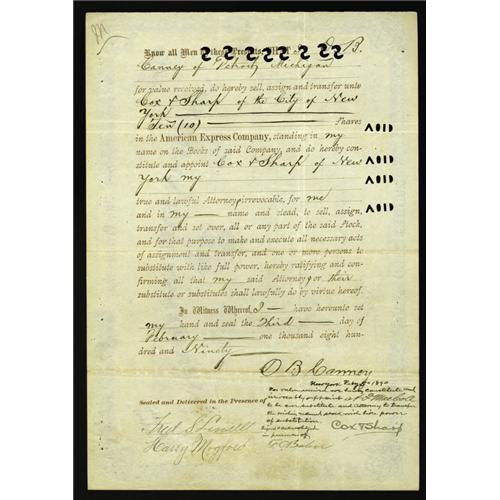 Know all Men by these Presents, THAT I, O. B.
Canney of Detroit, Michigan
for value received, do hereby sell, assign and transfer unto
Cox & Sharp of the City of New
York
Ten (10) Shares
in the American Express Company, standing in my
name on the Books of said Company, and do hereby con-
stitute and appoint Cox & Sharp of New
York my
true and lawful Attorney, irrevocable, for me
and in my name and stead, to sell, assign,
transfer and set over, all or any part of the said Stock,
and for that purpose to make and execute all necessary acts
of assignment and transfer, and one or more persons to
substitute with like full power, hereby ratifying and con-
firming all that my said Attorney or their
substitute or substitutes shall lawfully do by virtue hereof.
In Witness Whereof, I have hereunto set
my hand and seal the Third day of
February one thousand eight hun-
dred and Ninety
O B Canney
New York Feby 1890
For value received we hereby constitute and
irrevocably appoint
to be our substitute and Attorney to transfer
the within named stock with like power
of substitution.
Sealed and Delivered in the Presence of
Cox & Sharp
in presence of
Fred S
Harry Mogford
VOID
VOID
VOID
VOID